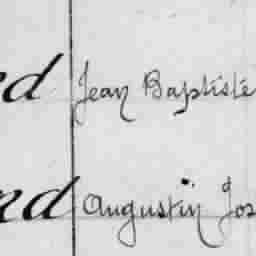 ed Jean Baptiste
nd Augustin Jos